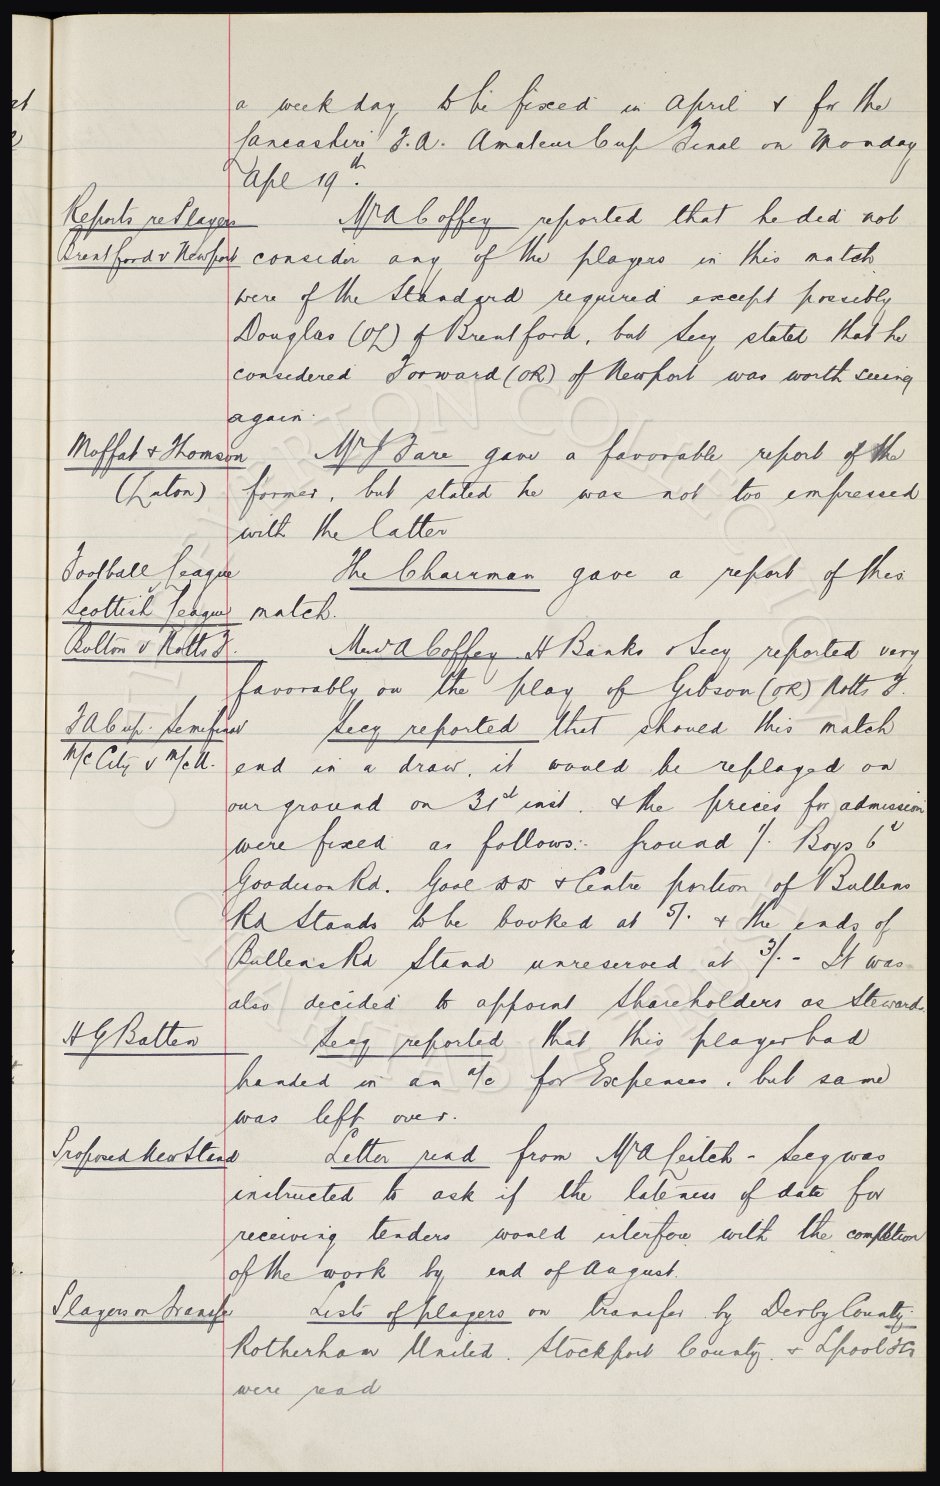 a week day, to be fixed in April & for the
Lancashire F.A. Amateur Cup Final on Monday
Apl 19th.
Reports re Players Mr A Coffey reported that he did not
Brentford v Newport consider any of the players in this match
were of the Standard required except possibly
Douglas (OL) of Brentford, but Secy stated that he
considered Forward (OR) of Newport was worth seeing
again.
Moffat & Thomson Mr J Fare gave a favorable report of the
(Luton) former, but stated he was not too impressed
with the latter
Football League The Chairman gave a report of this
Scottish League match.
Bolton v Notts F. Messrs A Coffey H Banks & Secy reported very
favorably on the play of Gibson (OR) Notts F.
F A Cup. Semifinal Secy reported that should this match
M/c City v M/c U. end in a draw, it would be replayed on
our ground on 31st inst. & the prices for admission
were fixed as follows:- Ground 1/. Boys 6d
Goodison Rd. Goal & Centre portion of Bullens
Rd Stands to be booked at 5/. & the ends of
Bullens Rd Stand unreserved at 3/. - It was
also decided to appoint Shareholders as Stewards.
H G Batten Secy reported that this player had
handed in an a/c for Expenses, but same
was left over.
Proposed New Stand Letter read from Mr A Leitch - Secy was
instructed to ask if the lateness of date for
receiving tenders would interfere with the completion
of the work by end of August.
Players on Transfer Lists of players on transfer by Derby County
Rotherham United. Stockport County. & Lpool FC
were read
THE EVERTON COLLECTION
CHARITABLE TRUST